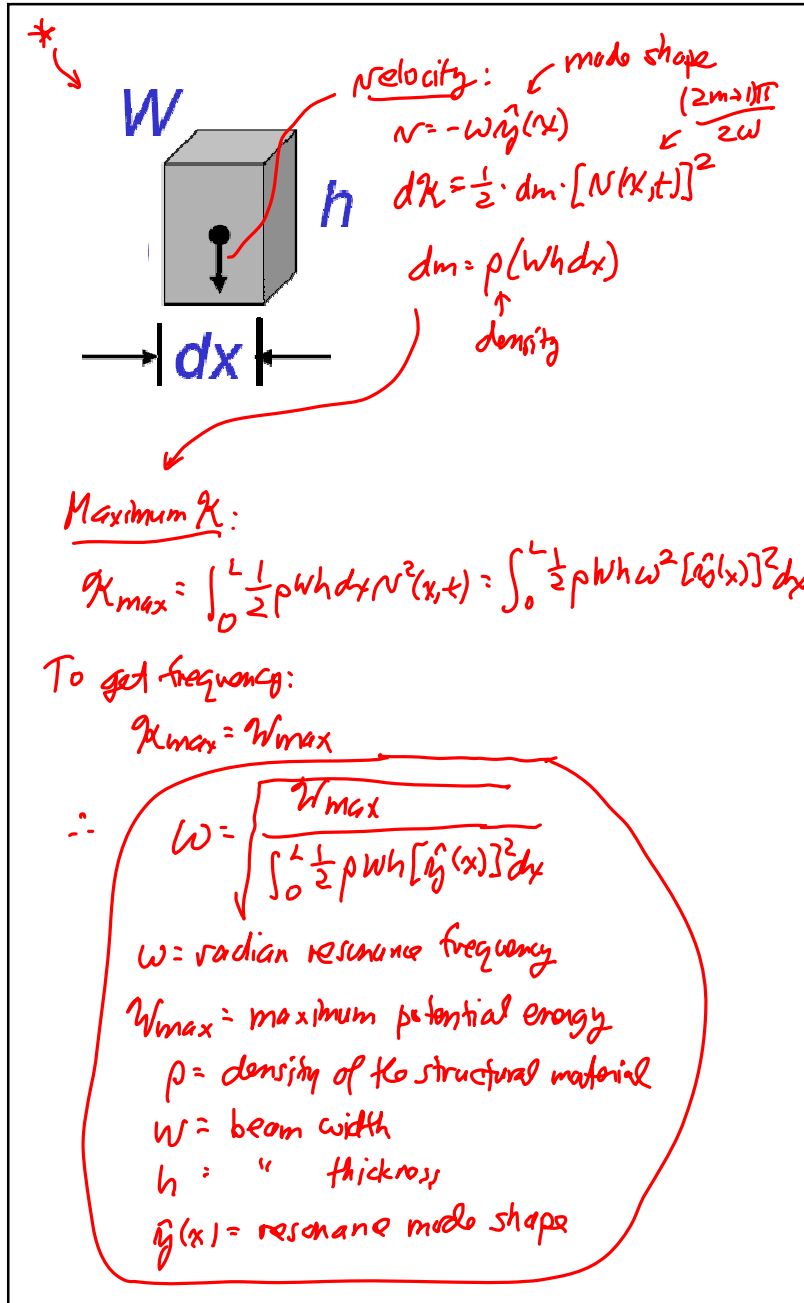 *
velocity:
mode shape
W
v = -ωŷ(x)
(2m+1)π / 2ω
h
dK = 1/2 · dm · [v(x,t)]²
dm = ρ(Whdx)
density
dx
Maximum K:
Kmax = ∫₀ᴸ 1/2 ρWhdx v²(x,t) = ∫₀ᴸ 1/2 ρWhω²[ŷ(x)]²dx
To get frequency:
Kmax = Wmax
∴ ω = √(Wmax / ∫₀ᴸ 1/2 ρWh[ŷ(x)]²dx)
ω = radian resonance frequency
Wmax = maximum potential energy
ρ = density of the structural material
W = beam width
h = " thickness
ŷ(x) = resonance mode shape